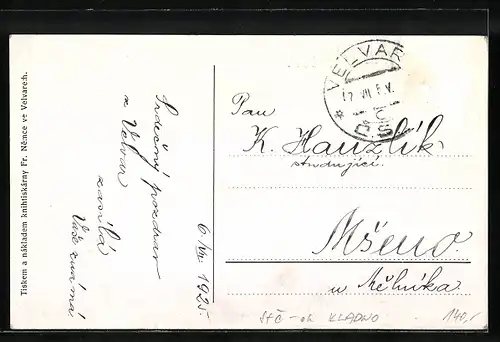 Tiskem a nákladem knihtiskárny Fr. Němce ve Velvarech.
Srdečný pozdrav
z Velvar
zasílá
Vaše známá
6./VIII 1925.
VELVAR
ČS
Pan
K. Hanzlík
studující
Mšeno
u Mělníka
STČ - ok KLADNO
140,-